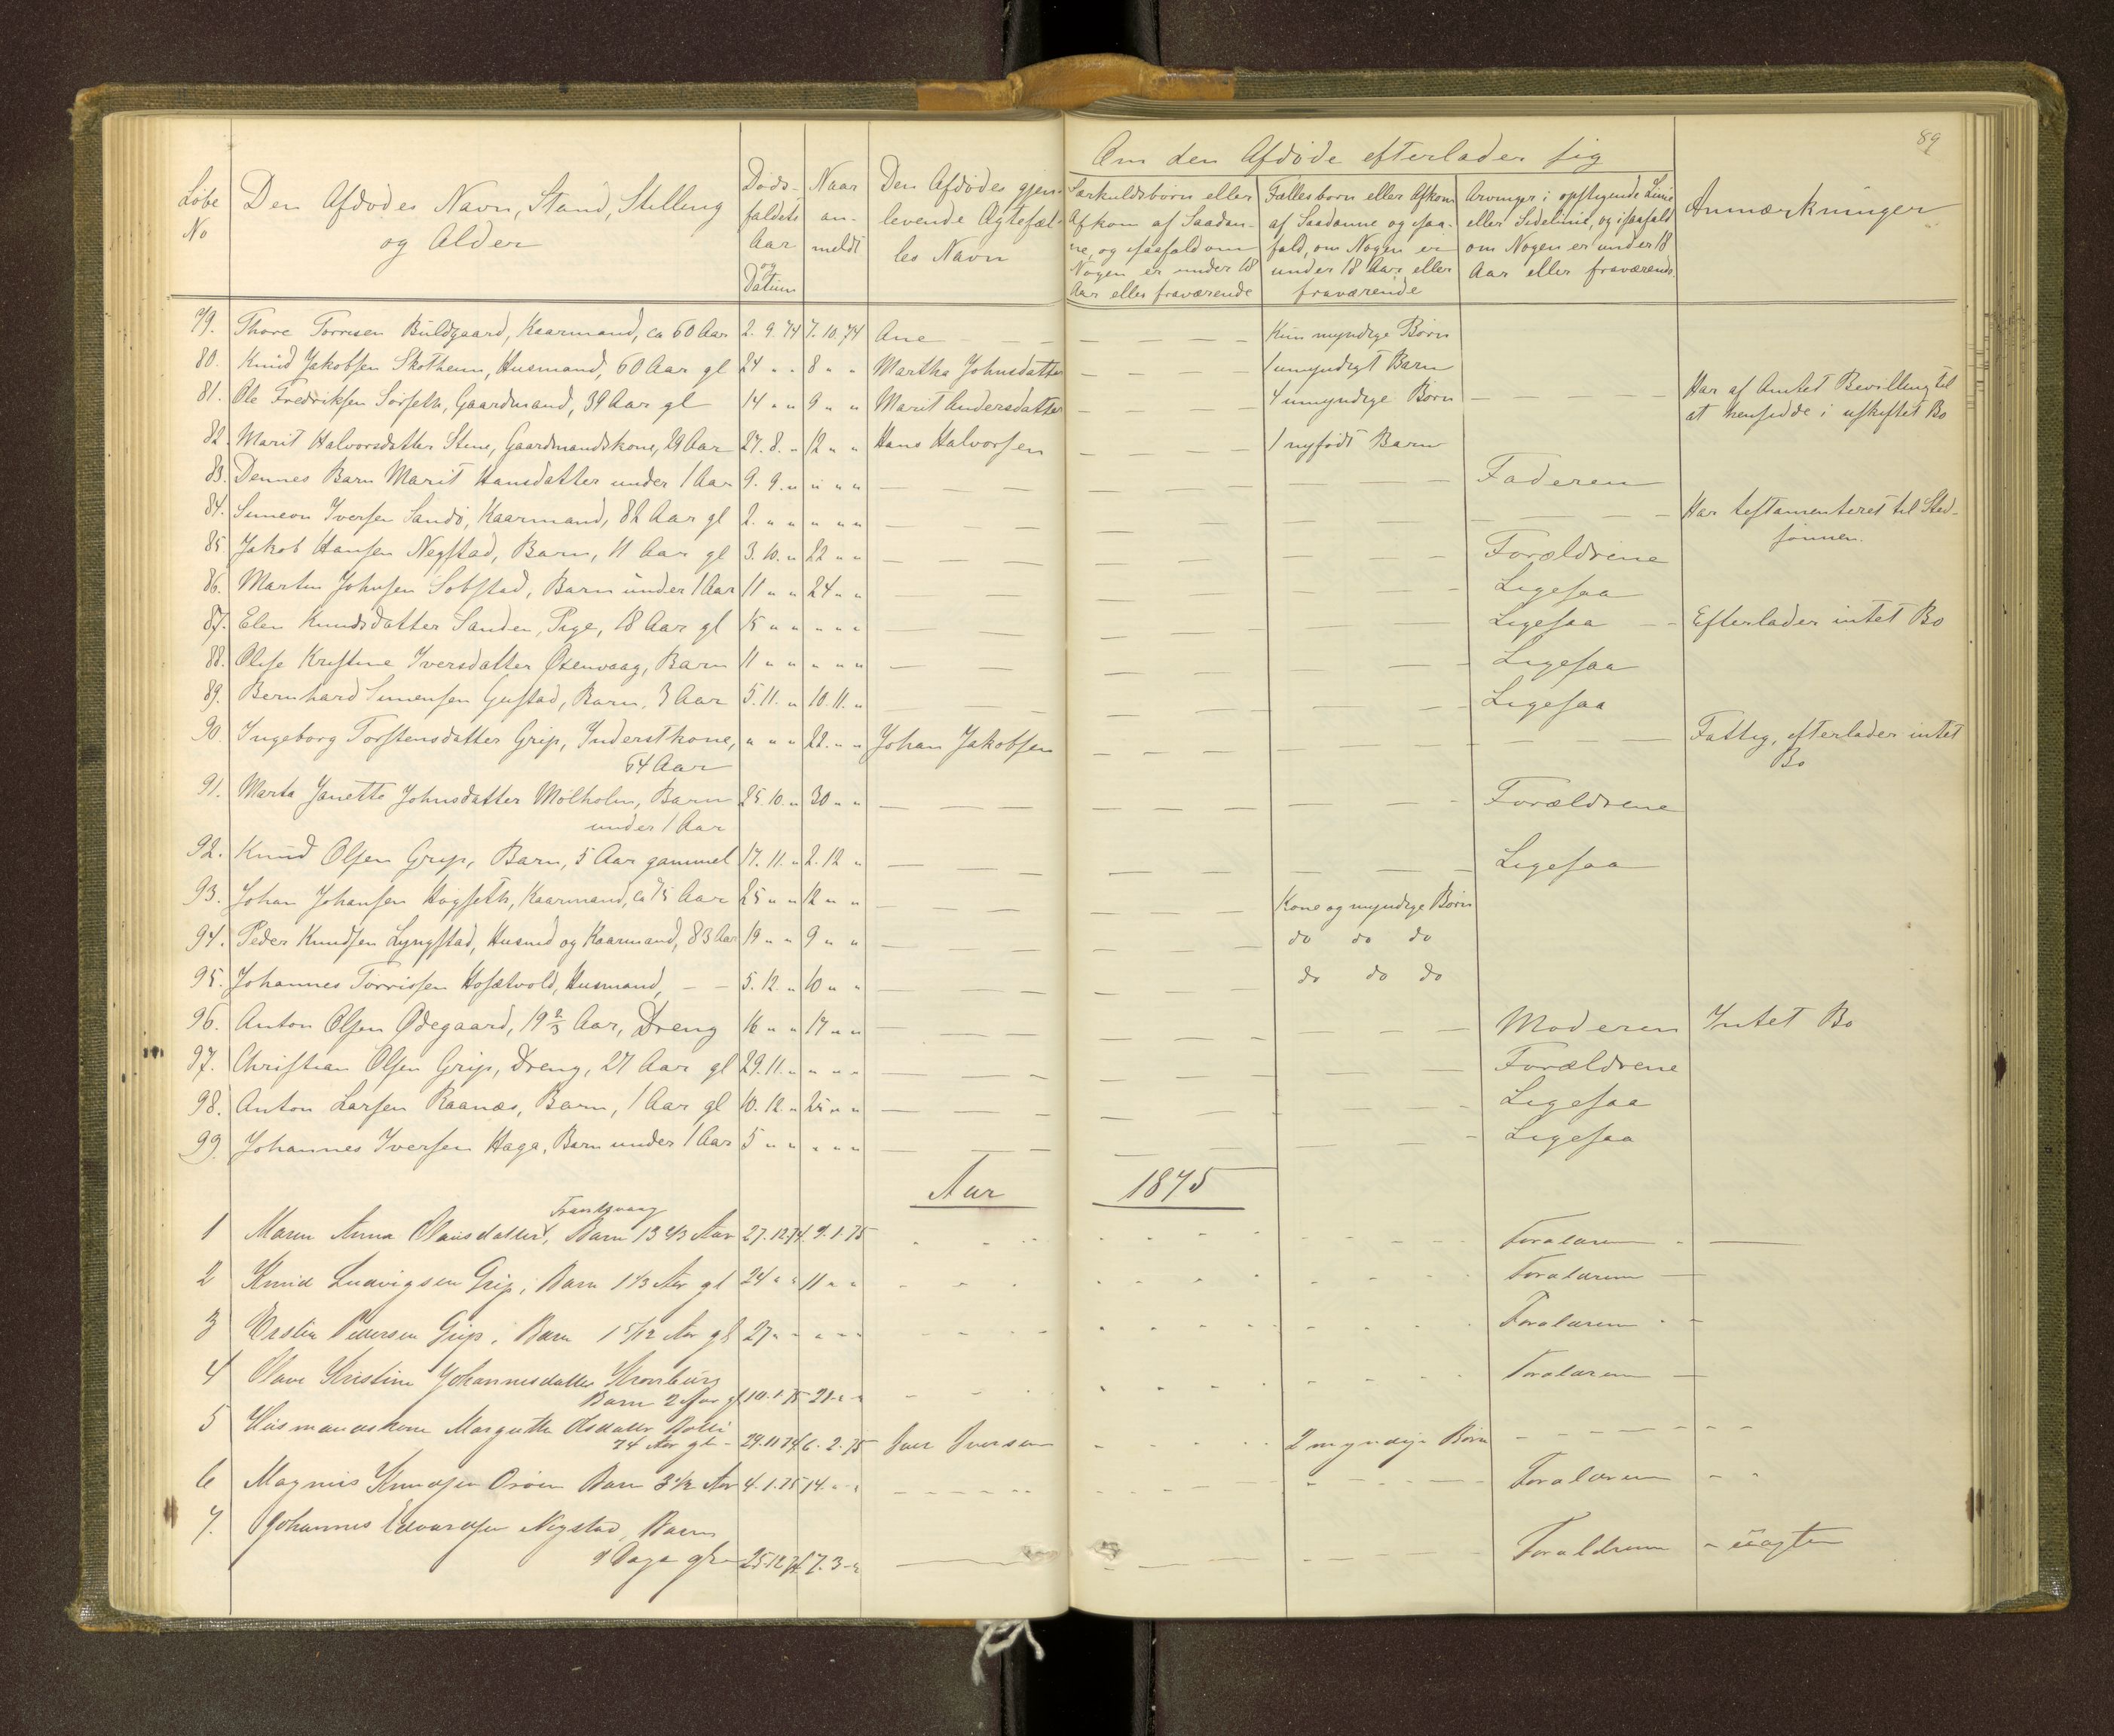 89
Om den Afdøde efterlader sig
Løbe No | Den Afdødes Navn, Stand, Stilling og Alder | Dødsfaldets Aar og Datum | Naar anmeldt | Den Afdødes gjenlevende Ægtefælles Navn | Særkuldsbørn eller Afkom af Saadanne, og isaafald om Nogen er under 18 Aar eller fraværende | Fællesbørn eller Afkom af Saadanne og isaafald, om Nogen er under 18 Aar eller fraværende | Arvinger i opstigende Linie eller Sidelinie, og isaafald om Nogen er under 18 Aar eller fraværende | Anmærkninger
79. Thore Torresen Buldgaard, Kaarmand, ca 60 Aar 2. 9. 74 7. 10. 74 Ane Kun myndige Børn
80. Knud Jakobsen Skothenn, Husmand, 60 Aar gl 24 " " 8 " " Martha Johnsdatter 1 umyndigt Barn
81. Ole Fredriksen Sørseth, Gaardmand, 39 Aar gl 14 " " 9 " " Marit Andersdatter 4 umyndige Børn Har af Amtet Bevilling til at hensidde i uskiftet Bo
82. Marit Halvorsdatter Stene, Gaardmandskone, 29 Aar 27. 8. " 12 " " Hans Halvorsen 1 nyfødt Barn
83. Dennes Barn Marit Hansdatter under 1 Aar 9. 9. " " " " Faderen
84. Simeon Iversen Sandø, Kaarmand, 82 Aar gl 2. " " " " " Har testamenteret til Stedsønnen.
85 Jakob Hansen Negstad, Barn, 11 Aar gl 3. 10. " 22 " " Forældrene
86. Martin Johnsen Solstad, Barn under 1 Aar 11 " " 24 " " Ligesaa
87. Elen Knudsdatter Sanden, Pige, 18 Aar gl 15 " " " " " Ligesaa Efterlader intet Bo
88. Olise Kristine Iversdatter Oxenvaag, Barn 11 " " " " " Ligesaa
89. Bernhard Simensen Gustad, Barn, 3 Aar 5. 11. " 10. 11. " Ligesaa
90. Ingeborg Torstensdatter Grip, Inderstkone, " " " 22. " " Johan Jakobsen Fattig, efterlader intet Bo
64 Aar
91. Marta Janette Johnsdatter Mølholm, Barn 25. 10. " 30 " " Forældrene
under 1 Aar
92. Knud Olsen Grip, Barn, 5 Aar gammel 17. 11. " 2. 12 " Ligesaa
93. Johan Johansen Hogseth, Kaarmand, ca 75 Aar 25 " " 12 " " Kone og myndige Børn
94. Peder Knudsen Lyngstad, Husmd og Kaarmand, 83 Aar 19 " " 9 " " do do do
95. Johannes Torrissen Hosetvold, Husmand, 5. 12. " 10 " " do do do
96. Anton Olsen Ødegaard, 19 2/3 Aar, Dreng 16 " " 17 " " Moderen Intet Bo
97. Christian Olsen Grip, Dreng, 27 Aar gl 29. 11. " " " " Forældrene
98. Anton Larsen Raanæs, Barn, 1 Aar gl 10. 12. " 25 " " Ligesaa
99. Johannes Iversen Haga, Barn under 1 Aar 5 " " " " " Ligesaa
Aar 1875
Frantzvaag
1 Maren Anna Olausdatter, Barn 13 2/3 Aar 27. 12. 74 9. 1. 75 Forældrene
2 Knud Ludvigsen Grip, Barn 1 1/3 Aar gl 24 " " 11 " " Forældrene
3 Pedersen Grip, Barn 1 5/12 Aar gl 27 " " " " " Forældrene
4 Olave Kristine Johannesdatter Kronborg
Barn 2 Aar gl 10. 1. 75 21 " " Forældrene
5 Husmandskone Margrethe Olsdatter
74 Aar gl 29. 11. 74 6. 2. 75 Iver Iversen 2 myndige Børn
6 Magnus Knudsen Orøen Barn 3 1/2 Aar 4. 1. 75 14. " " Forældrene
7. Johannes Edvardsen Negstad, Barn
9 Dage gl 25. 12. 74 17. 3 " Forældrene uægte